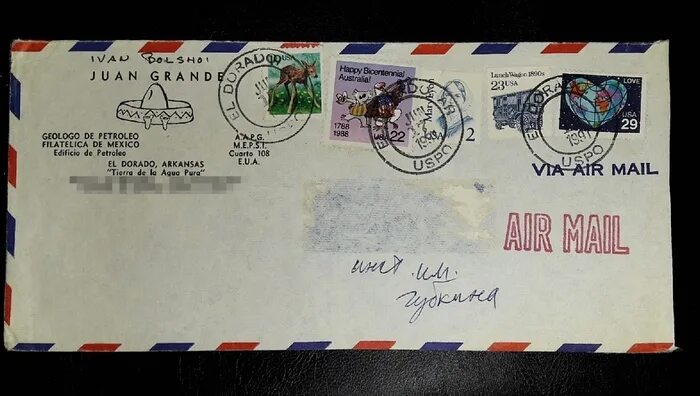 IVAN BOLSHOI
JUAN GRANDE
GEOLOGO DE PETROLEO
FILATELICA DE MEXICO
Edificio de Petroleo
A.A.P.G.
M.E.P.S.I.
Cuarto 108
EL DORADO, ARKANSAS
E.U.A.
"Tierra de la Agua Pura"
USA
EL DORADO
Happy Bicentennial
Australia!
1788
1988
22
EL DORADO, AR
JUN
USPO
Mary
2
Lunch Wagon 1890s
23 USA
LOVE
USA
29
EL DORADO
1991
USPO
VIA AIR MAIL
AIR MAIL
инст. им.
Губкина